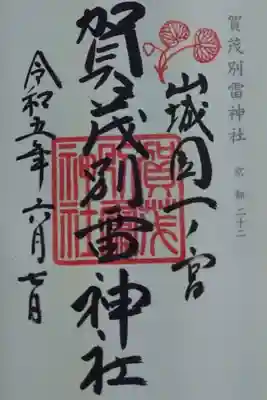 賀茂別雷神社
京都二十二
山城国一ノ宮
賀茂別雷神社
賀茂別雷神社
令和五年六月七日